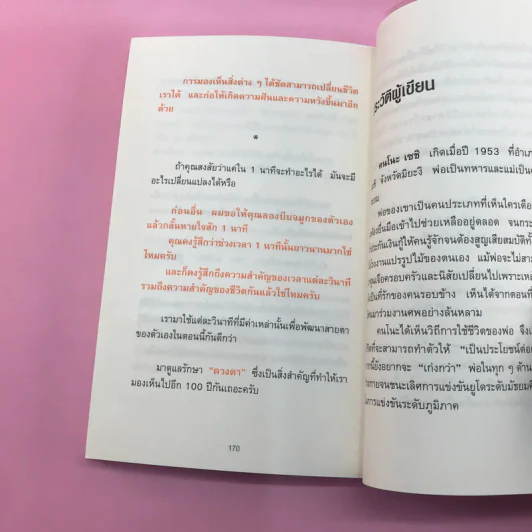 การมองเห็นสิ่งต่าง ๆ ได้ชัดสามารถเปลี่ยนชีวิต
เราได้ และก่อให้เกิดความฝันและความหวังขึ้นมาอีก
ด้วย
*
ถ้าคุณสงสัยว่าแค่ใน 1 นาทีจะทำอะไรได้ มันจะมี
อะไรเปลี่ยนแปลงได้หรือ
ก่อนอื่น ผมขอให้คุณลองบีบจมูกของตัวเอง
แล้วกลั้นหายใจสัก 1 นาที
คุณคงรู้สึกว่าช่วงเวลา 1 นาทีนั้นยาวนานมากใช่
ไหมครับ
และก็คงรู้สึกถึงความสำคัญของเวลาแต่ละวินาที
รวมถึงความสำคัญของชีวิตกันแล้วใช่ไหมครับ
เรามาใช้แต่ละวินาทีที่มีค่าเหล่านั้นเพื่อพัฒนาสายตา
ของตัวเองในตอนนี้กันดีกว่า
มาดูแลรักษา "ดวงตา" ซึ่งเป็นสิ่งสำคัญที่ทำให้เรา
มองเห็นไปอีก 100 ปีกันเถอะครับ
170
ประวัติผู้เขียน
คนโนะ เซชิ เกิดเมื่อปี 1953 ที่อำเภอ
จังหวัดมิยะงิ พ่อเป็นทหารและแม่เป็น
พ่อของเขาเป็นคนประเภทที่เห็นใครเดือ
ร้องอื่นมือเข้าไปช่วยเหลืออยู่ตลอด จนกระ
ประกันเงินกู้ให้คนรู้จักจนต้องสูญเสียสมบัติทั้
โรงงานแปรรูปไม้ของตนเอง แม้พ่อจะไม่สา
ดูแลครอบครัวและนิสัยเปลี่ยนไปเพราะเห
เป็นที่รักของคนรอบข้าง เห็นได้จากตอนที่
มาร่วมงานศพอย่างล้นหลาม
คนโนะได้เห็นวิถีการใช้ชีวิตของพ่อ จึงเ
ที่จะสามารถทำตัวให้ "เป็นประโยชน์ต่อ
นี้ยังอยากจะ "เก่งกว่า" พ่อในทุก ๆ ด้าน
กายจนชนะเลิศการแข่งขันยูโดระดับมัธยม
การแข่งขันระดับภูมิภาค